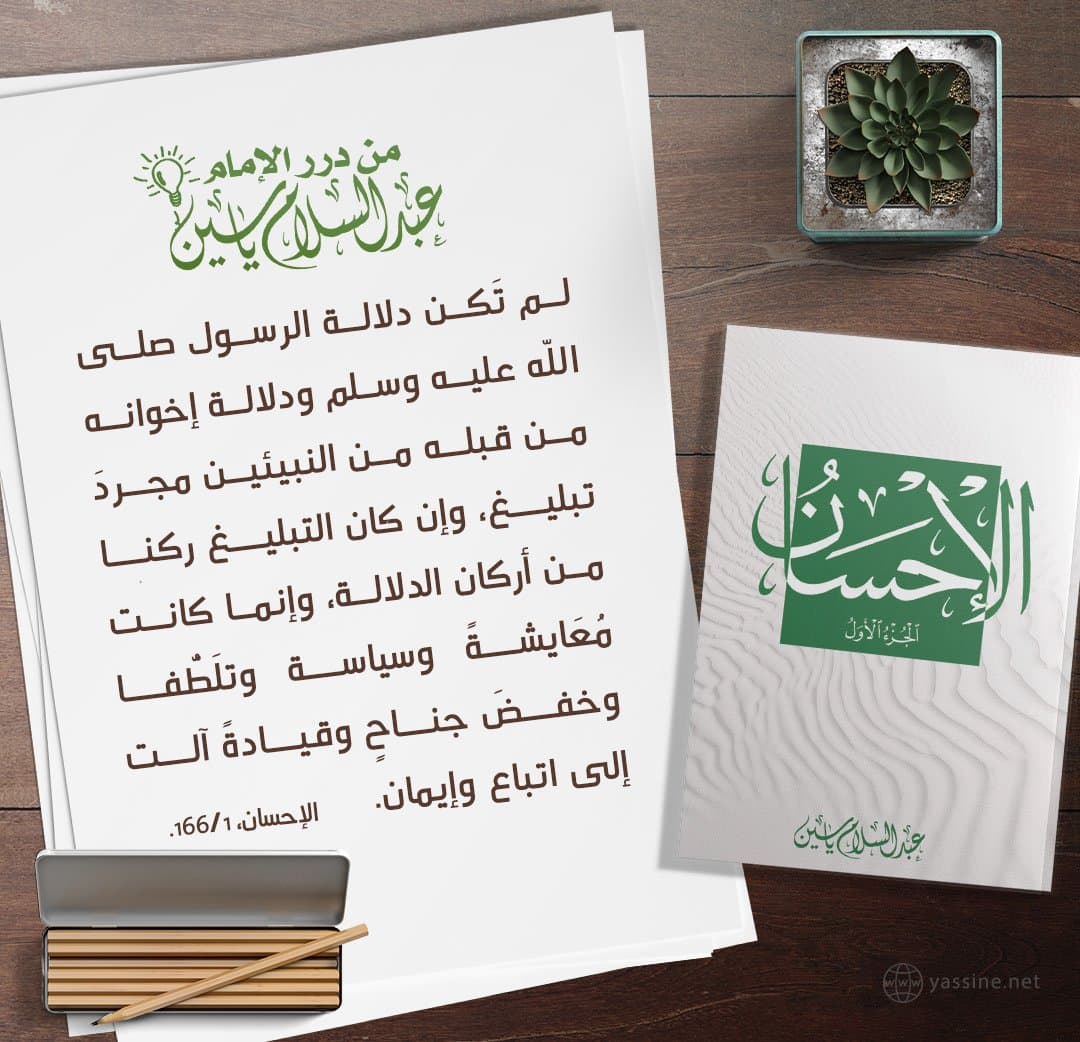 من درر الإمام
عبد السلام ياسين
لم تَكن دلالة الرسول صلى
الله عليه وسلم ودلالة إخوانه
من قبله من النبيئين مجردَ
تبليغ، وإن كان التبليغ ركنا
من أركان الدلالة، وإنما كانت
مُعَايشةً وسياسة وتلَطُّفا
وخفضَ جناحٍ وقيادةً آلت
إلى اتباع وإيمان.
الإحسان، 166/1.
الإحسان
الجزء الأول
عبد السلام ياسين
www yassine.net